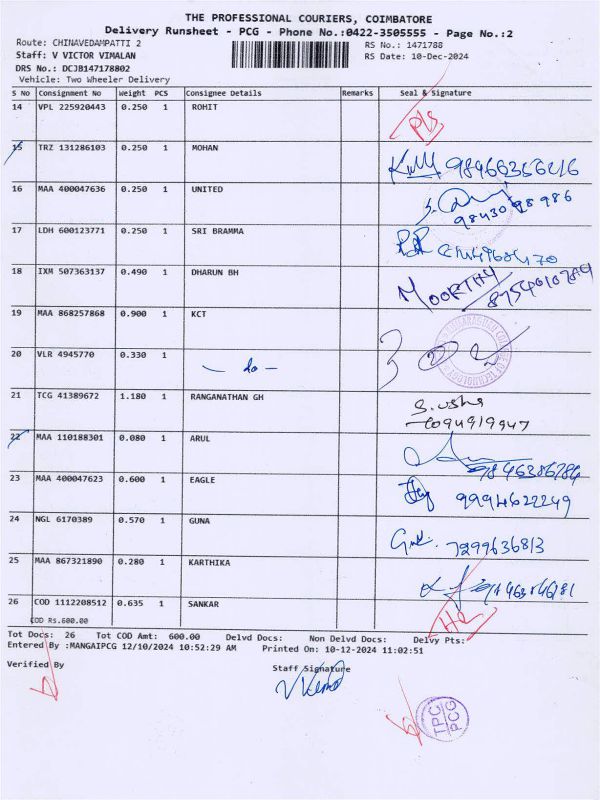 THE PROFESSIONAL COURIERS, COIMBATORE
Delivery Runsheet - PCG - Phone No.:0422-3505555 - Page No.:2
Route: CHINAVEDAMPATTI 2 RS No.: 1471788
Staff: V VICTOR VIMALAN RS Date: 10-Dec-2024
DRS No.: DCJB147178802
Vehicle: Two Wheeler Delivery
S No Consignment No Weight PCS Consignee Details Remarks Seal & Signature
14 VPL 225920443 0.250 1 ROHIT
15 TRZ 131286103 0.250 1 MOHAN
16 MAA 400047636 0.250 1 UNITED
17 LDH 600123771 0.250 1 SRI BRAMMA
18 IXM 507363137 0.490 1 DHARUN BH MOORTHY
19 MAA 868257868 0.900 1 KCT
20 VLR 4945770 0.330 1 - do -
21 TCG 41389672 1.180 1 RANGANATHAN GH S. usha
22 MAA 110188301 0.080 1 ARUL
23 MAA 400047623 0.600 1 EAGLE 9994622249
24 NGL 6170389 0.570 1 GUNA 7299636813
25 MAA 867321890 0.280 1 KARTHIKA
26 COD 1112208512 0.635 1 SANKAR
COD Rs.600.00
Tot Docs: 26 Tot COD Amt: 600.00 Delvd Docs: Non Delvd Docs: Delvy Pts:
Entered By :MANGAIPCG 12/10/2024 10:52:29 AM Printed On: 10-12-2024 11:02:51
Verified By Staff Signature
TPC
PCG